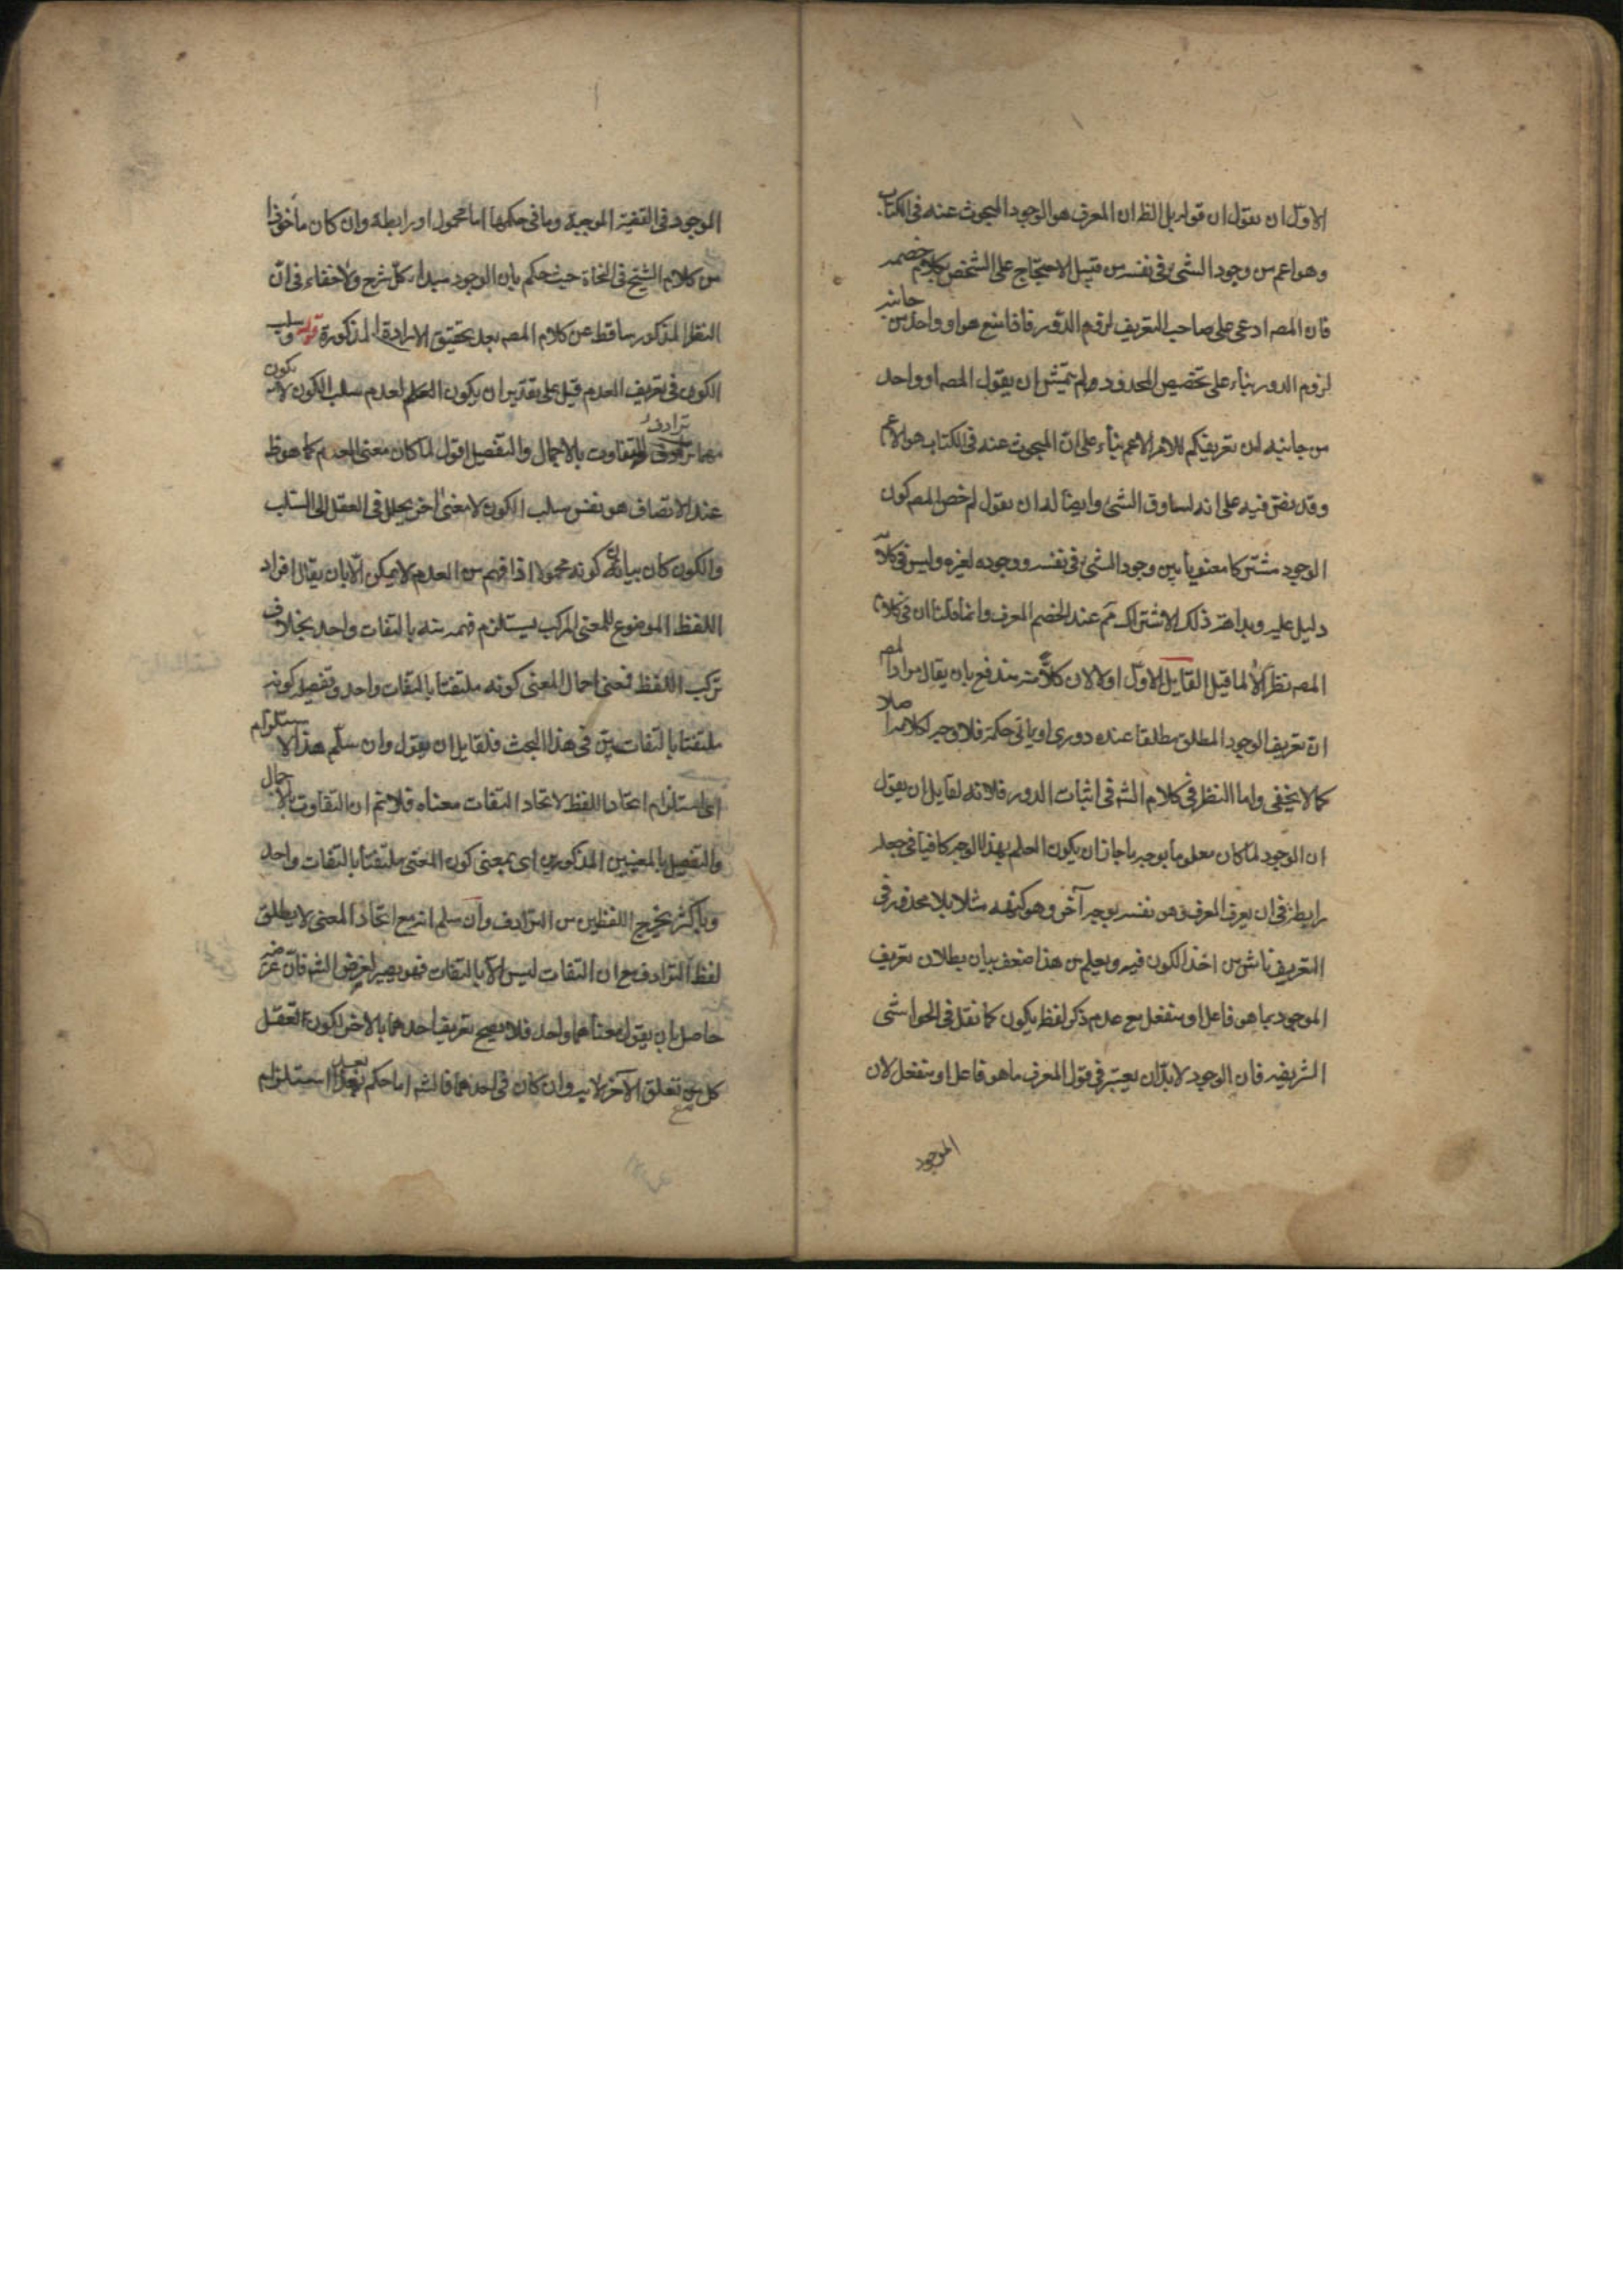 الاول ان يقول ان قوله بل الظ ان المعرف هو الوجود المبحوث عنه فى الكتاب
وهو اعم من وجود الشئ فى نفسه من قبيل الاحتجاج على الشخص بكلام خصمه
فان المصه ادعى على صاحب التعريف لزوم الدور فاذا منع هو او واحد من جانبه
لزوم الدور بناء على تخصيص المحدود ولم يتمش ان يقول المصه او واحد
من جانبه ان تعريفكم للامر الاعم بناء على ان المبحوث عنه فى الكتاب هو الاعم
وقد نص فيه على انه يساوق الشئ وايضا له ان يقول لم خص المصه كون
الوجود مشتركا معنويا بين وجود الشئ فى نفسه ووجوده لغيره وليس فى كلامه
دليل عليه وبداهة ذلك الاشتراك مم عند الخصم المعرف وانما قلنا ان فى كلام
المصه نظرا لا لما قيل القايل الاول اولا لان كلامه يندفع بان يقال مراد المصه
ان تعريف الوجود المطلق مطلقا عنده دورى او ياتى حكمه فلا وجه لكلامه اصلا
كما لا يخفى واما النظر فى كلام الشه فى اثبات الدور فلانه لقايل ان يقول
ان الوجود لما كان معلوما بوجه ما جاز ان يكون العلم بهذا الوجه كافيا فى جعله
رابطة فى ان يعرف المعرف نفسه بوجه آخر وهو كنهه مثلا بلا محذور فى
التعريف ناش من اخذ الكون فيه ويعلم من هذا ضعف بيان بطلان تعريف
الموجود بما هو فاعل او منفعل مع عدم ذكر لفظ يكون كما نقل فى الحواشى
الشريفيه فان الوجود لا بد ان يعتبر فى قول المعرف ما هو فاعل او منفعل لان
الموجود
الموجود فى القضية الموجبة وما فى حكمها اما محمول او رابطة وان كان مأخوذا
من كلام الشيخ فى النجاة حيث حكم بان الوجود مبداء كل شرح ولا خفاء فى ان
النظر المذكور ساقط عن كلام المصه بعد تحقيق الارادة المذكورة قوله وسلب
الكون فى تعريف العدم قيل على تقدير ان يكون العلم لعدم سلب الكون لا يكون
بينهما ترادف للتفاوت بالاجمال والتفصيل اقول لما كان معنى العدم كما هو ظ
عند الاتصاف هو نفس سلب الكون لا معنى آخر يحلل فى العقل الى السلب
والكون كان بيانه كونه محمولا اذا فهم من العدم لا يمكن الا بان يقال افراد
اللفظ الموضوع للمعنى المركب يستلزم فهمه منه بالتفات واحد بخلاف
تركب اللفظ فمعنى اجمال المعنى كونه ملتفتا بالتفات واحد وتفصيله كونه
ملتفتا بالتفاتين فى هذا البحث فلقايل ان يقول وان سلم هذا الاستلزام
اى استلزام اتحاد اللفظ لاتحاد التفات معناه فلا نم ان التفاوت بالاجمال
والتفصيل بالمعنيين المذكورين اى بمعنى كون المعنى ملتفتا بالتفات واحد
وباكثر يخرج اللفظين من الترادف وان سلم انه مع اتحاد المعنى لا يطلق
لفظ الترادف مع ان التفات ليس الا بالتفات فهو يضر لغرض الشه فان غرضه
حاصل بان يقول معناهما واحد فلا يصح تعريف احدهما بالآخر لكون تعقل
كل مع تعلق الآخر لا به وان كان فى احدهما فالشه اما حكم بعدم استلزام